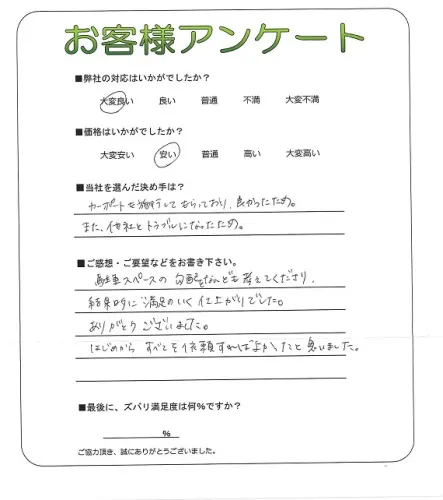 お客様アンケート
■弊社の対応はいかがでしたか?
大変良い 良い 普通 不満 大変不満
■価格はいかがでしたか?
大変安い 安い 普通 高い 大変高い
■当社を選んだ決め手は?
カーポートを施行してもらっており、良かったため。
また、他社とトラブルになったため。
■ご感想・ご要望などをお書き下さい。
駐車スペースの勾配なども考えてくださり、
結果的に満足のいく仕上がりでした。
ありがとうございました。
はじめからすべてを依頼すればよかったと思いました。
■最後に、ズバリ満足度は何%ですか?
%
ご協力頂き、誠にありがとうございました。